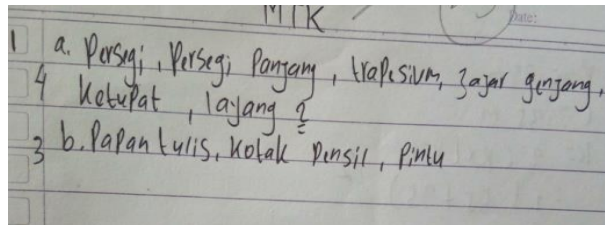 MTK
Date:
1 a. Persegi, Persegi Panjang, trapesium, Jajar genjang,
4 Ketupat, layang 2
3 b. Papan tulis, Kotak Pensil, Pintu